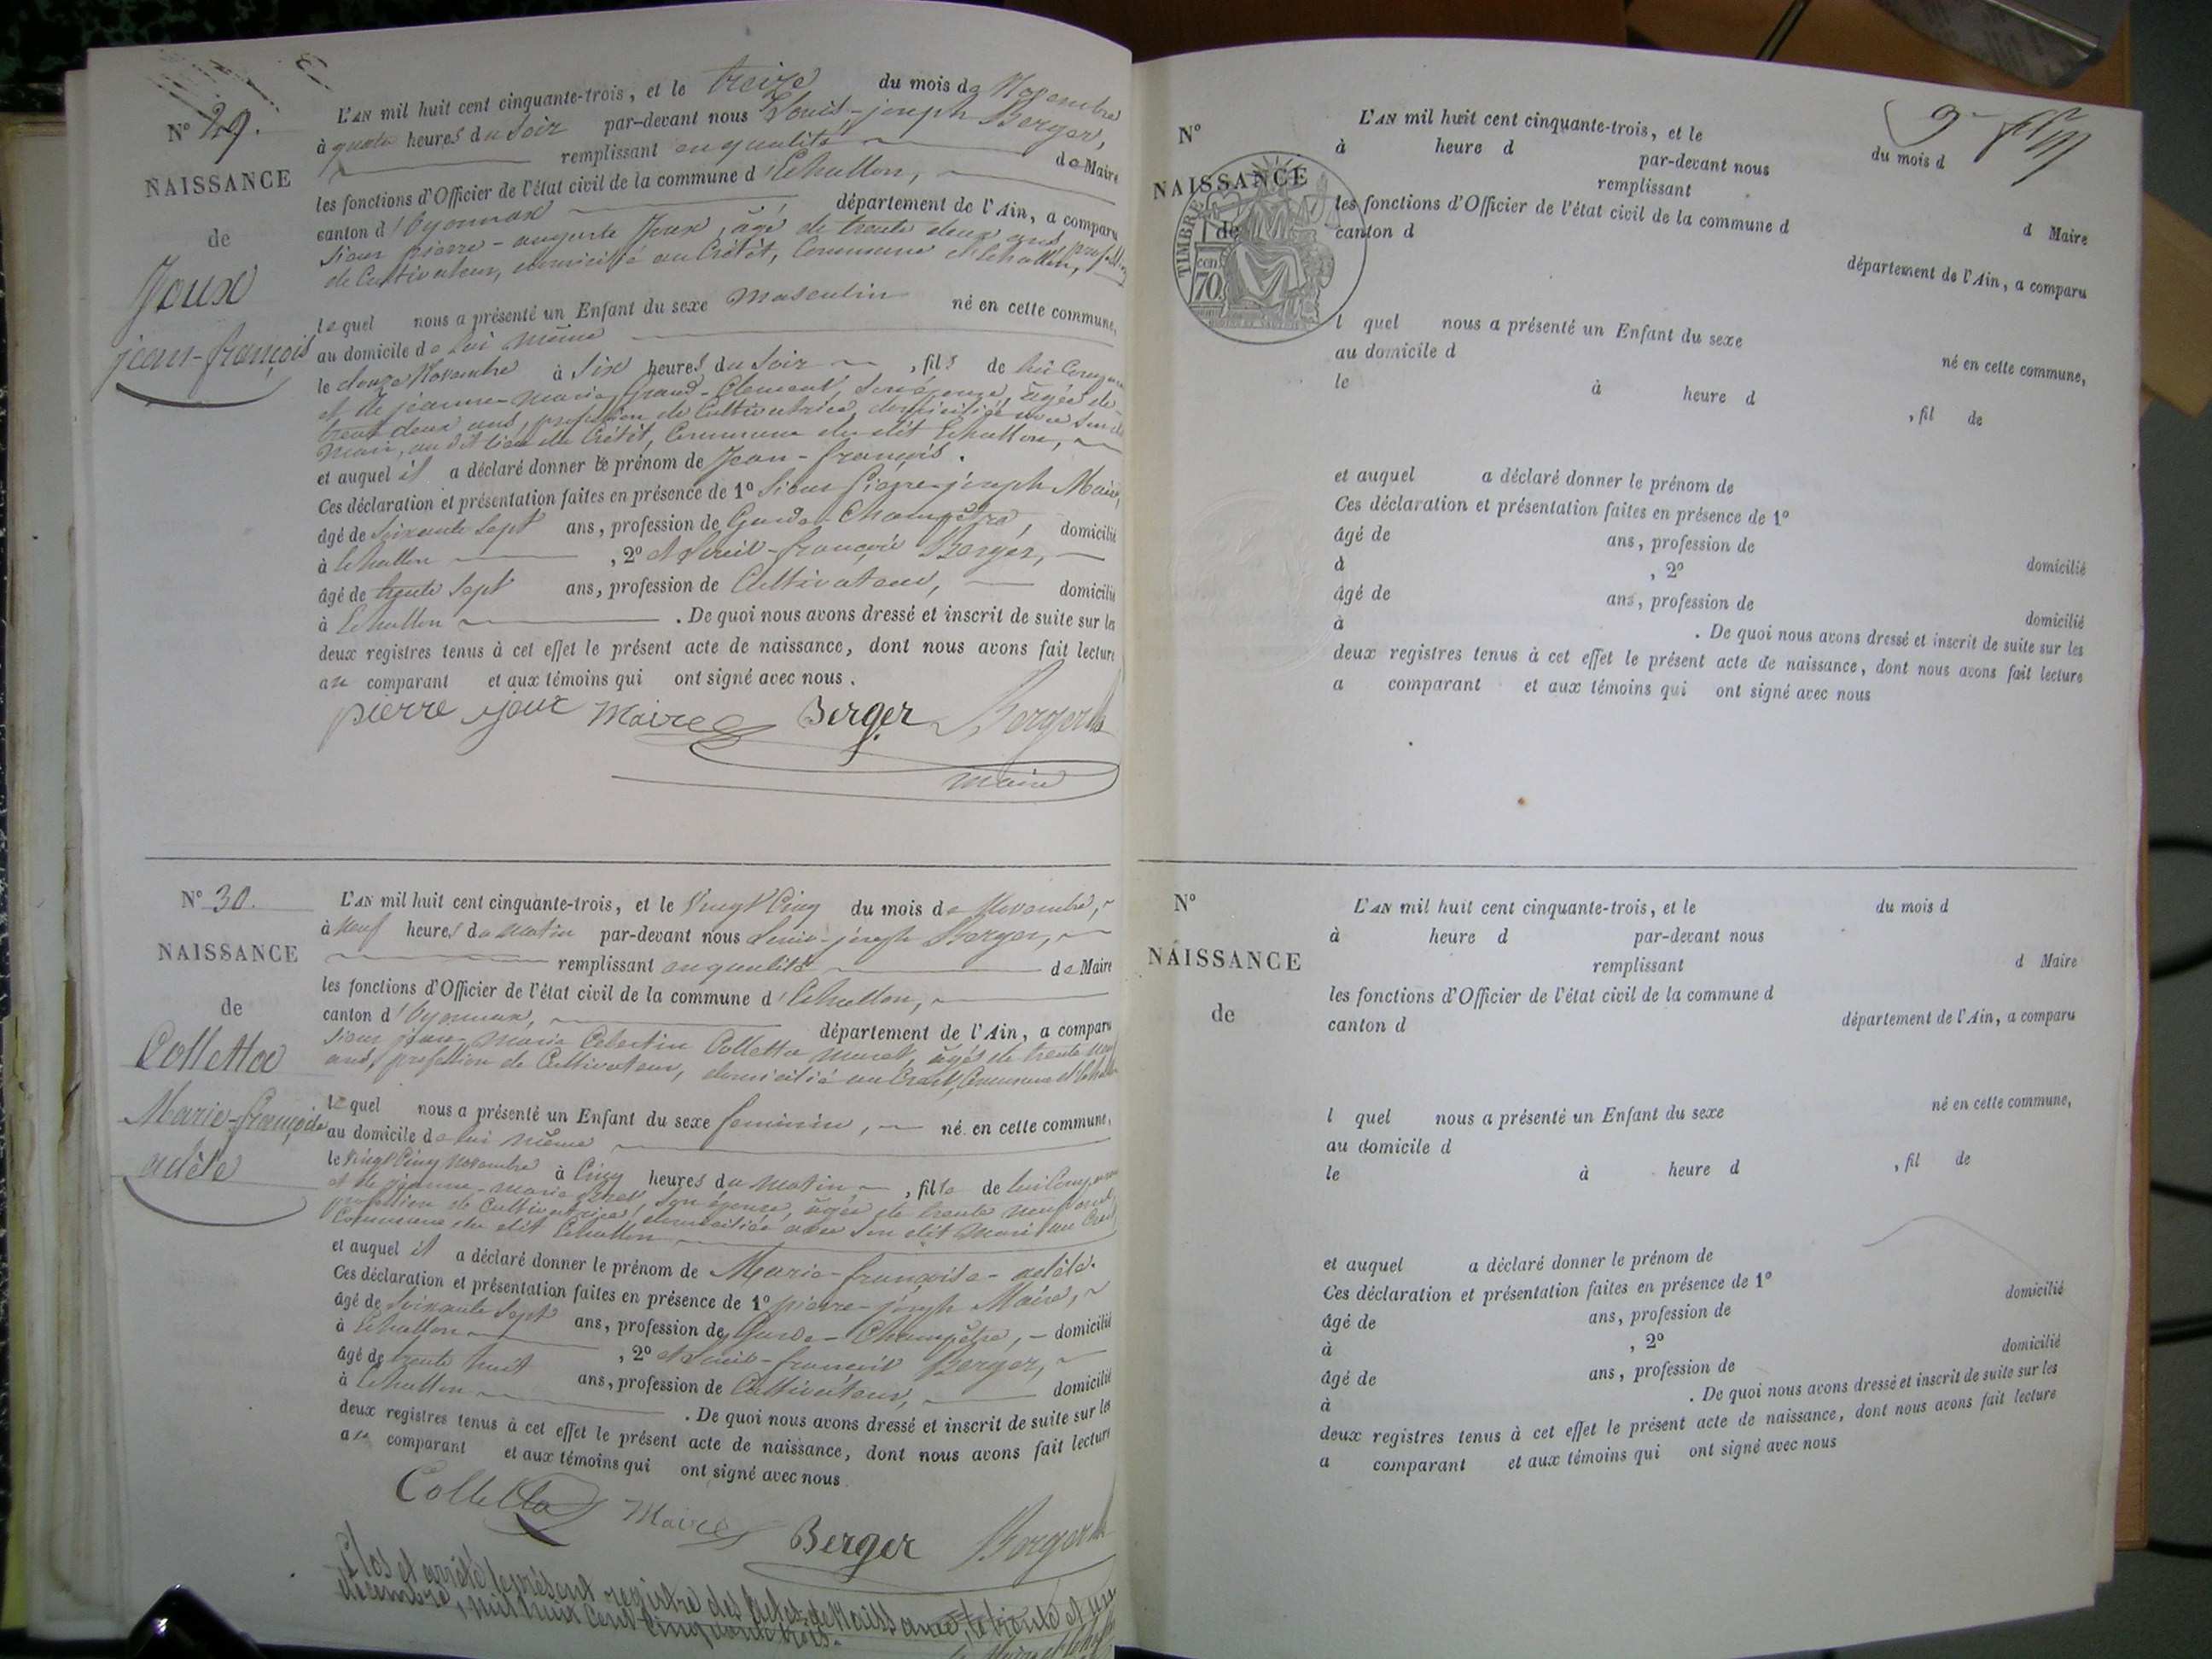 N° 29.
NAISSANCE
de
Joux
jean-françois
L'AN mil huit cent cinquante-trois, et le treize du mois de Novembre
à quatre heures du Soir par-devant nous Louis-joseph Berger,
remplissant en qualité de Maire
les fonctions d'Officier de l'état civil de la commune d'Echallon,
canton d'Oyonnax département de l'Ain, a comparu
Sieur pierre-auguste Joux, âgé de trente deux ans, profession
de Cultivateur, domicilié au Crétêt, Commune d'Echallon,
lequel nous a présenté un Enfant du sexe masculin né en cette commune,
au domicile de lui même
le douze Novembre à Six heures du Soir, fils de lui Comparant
et de jeanne-marie Grand-Clement, son épouse, âgée de
trente deux ans, profession de Cultivatrice, domiciliée avec son dit
mari, au dit lieu du Crétêt, Commune du dit Echallon,
et auquel il a déclaré donner le prénom de Jean-françois.
Ces déclaration et présentation faites en présence de 1° Sieur Pierre-joseph Maire,
âgé de Soixante Sept ans, profession de Garde-Champêtre, domicilié
à Echallon, 2° et Louis-françois Berger,
âgé de trente Sept ans, profession de Cultivateur, domicilié
à Echallon. De quoi nous avons dressé et inscrit de suite sur les
deux registres tenus à cet effet le présent acte de naissance, dont nous avons fait lecture
au comparant et aux témoins qui ont signé avec nous.
pierre joux Maire Berger Berger
maire
N° 30.
NAISSANCE
de
Colletta
Marie-françoise
adèle
L'AN mil huit cent cinquante-trois, et le Vingt Cinq du mois de Novembre,
à Neuf heures du Matin par-devant nous Louis-joseph Berger,
remplissant en qualité de Maire
les fonctions d'Officier de l'état civil de la commune d'Echallon,
canton d'Oyonnax, département de l'Ain, a comparu
Sieur jean-Marie Celestin Colletta âgé de trente neuf
ans, profession de Cultivateur, domicilié au Commune d'Echallon
lequel nous a présenté un Enfant du sexe feminin, né en cette commune,
au domicile de lui même
le Vingt Cinq Novembre à Cinq heures du Matin, fille de lui Comparant
et de jeanne-marie son épouse, âgée de trente neuf ans,
profession de Cultivatrice, domiciliée avec son dit Mari au
Commune du dit Echallon
et auquel il a déclaré donner le prénom de Marie-françoise-adèle.
Ces déclaration et présentation faites en présence de 1° pierre-joseph Maire,
âgé de Soixante Sept ans, profession de Garde-Champêtre, domicilié
à Echallon, 2° et Louis-françois Berger,
âgé de trente huit ans, profession de Cultivateur, domicilié
à Echallon. De quoi nous avons dressé et inscrit de suite sur les
deux registres tenus à cet effet le présent acte de naissance, dont nous avons fait lecture
au comparant et aux témoins qui ont signé avec nous
Colletta Maire Berger Berger
Clos et arrêté le présent registre des actes de Naissance, le trente et un
décembre, mil huit cent cinquante trois.
N°
NAISSANCE
de
TIMBRE
70
L'AN mil huit cent cinquante-trois, et le du mois d
à heure d par-devant nous
remplissant d Maire
les fonctions d'Officier de l'état civil de la commune d
canton d département de l'Ain, a comparu
l quel nous a présenté un Enfant du sexe né en cette commune,
au domicile d
le à heure d , fil de
et auquel a déclaré donner le prénom de
Ces déclaration et présentation faites en présence de 1°
âgé de ans, profession de domicilié
à , 2°
âgé de ans, profession de domicilié
à . De quoi nous avons dressé et inscrit de suite sur les
deux registres tenus à cet effet le présent acte de naissance, dont nous avons fait lecture
a comparant et aux témoins qui ont signé avec nous
N°
NAISSANCE
de
L'AN mil huit cent cinquante-trois, et le du mois d
à heure d par-devant nous
remplissant d Maire
les fonctions d'Officier de l'état civil de la commune d
canton d département de l'Ain, a comparu
l quel nous a présenté un Enfant du sexe né en cette commune,
au domicile d
le à heure d , fil de
et auquel a déclaré donner le prénom de
Ces déclaration et présentation faites en présence de 1°
âgé de ans, profession de domicilié
à , 2°
âgé de ans, profession de domicilié
à . De quoi nous avons dressé et inscrit de suite sur les
deux registres tenus à cet effet le présent acte de naissance, dont nous avons fait lecture
a comparant et aux témoins qui ont signé avec nous